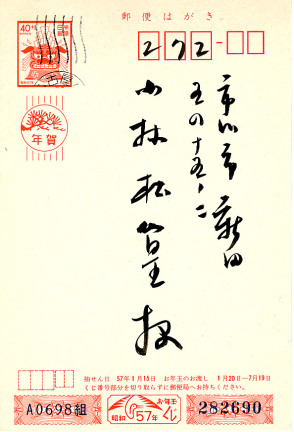 郵便はがき
40
日本郵便
272
年賀
市川市新田
五の十五ノ二
小林松篁様
抽せん日 57年1月15日 お年玉のお渡し 1月20日―7月19日
くじ番号部分を切り取らずに郵便局へお持ちください。
A0698組
お年玉
くじ
昭和57年
282690